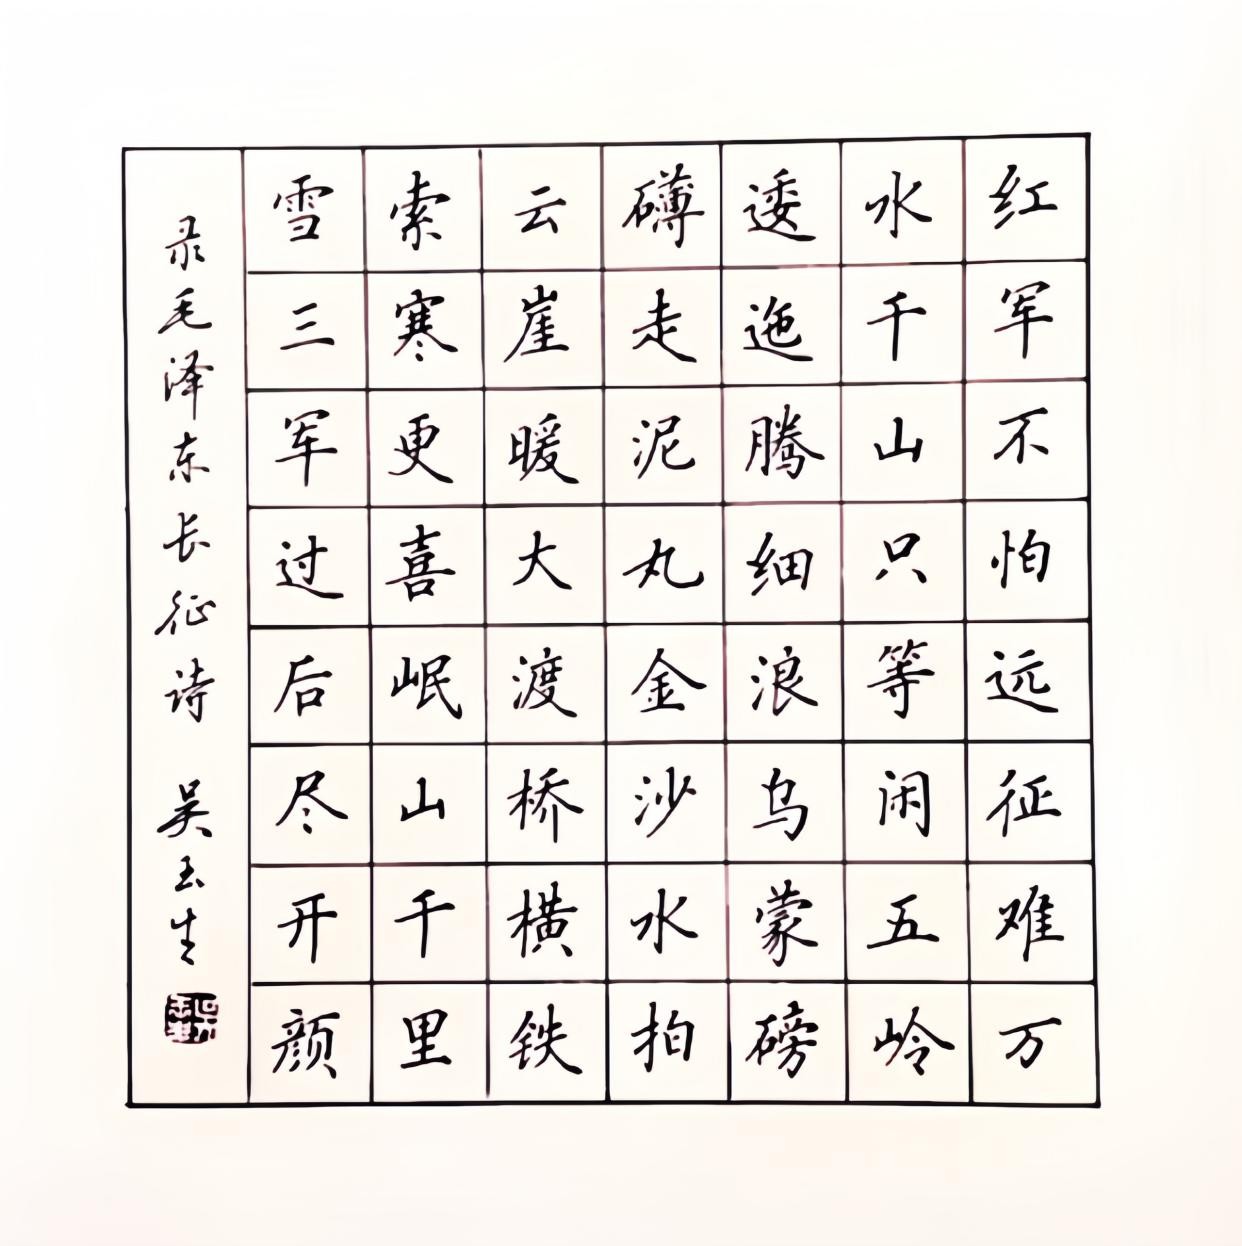 红军不怕远征难万
水千山只等闲五岭
逶迤腾细浪乌蒙磅
礴走泥丸金沙水拍
云崖暖大渡桥横铁
索寒更喜岷山千里
雪三军过后尽开颜
录毛泽东长征诗 吴玉生